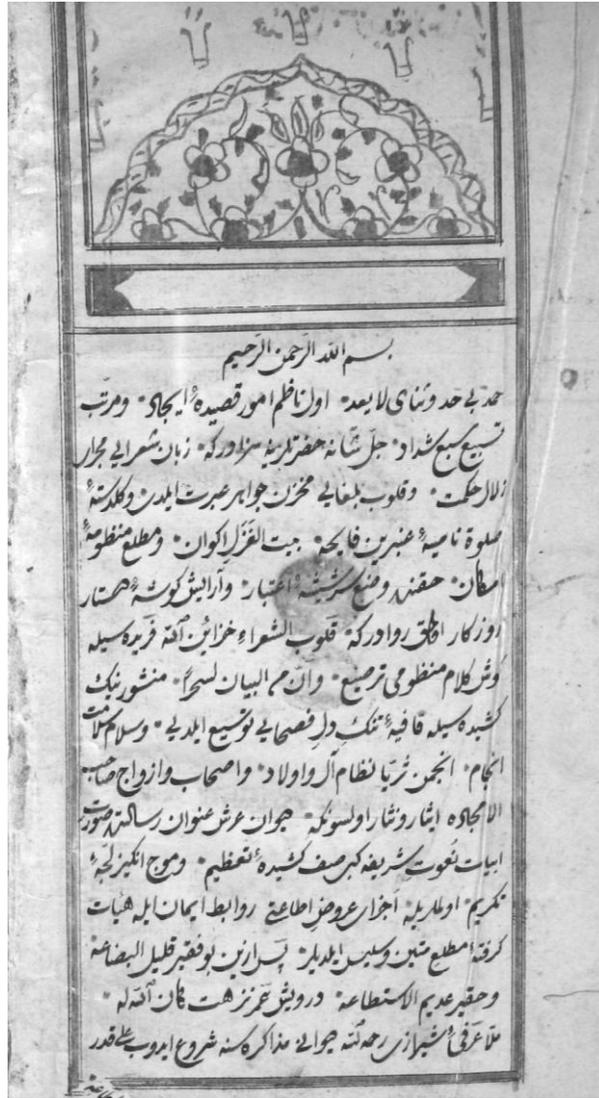 بسم الله الرحمن الرحيم
حمد بى حد وثناى لا يعد اول ناظم امور قصيدهٔ ايجاد ومرتب
تسبيع سبع شداد جل شانه حضرتلرينه سزادركه زبان شعرايى مجراى
زلال حكمت وقلوب بلغايى مخزن جواهر عبرت ايلدى وكلدستهٔ
صلوة ناميهٔ عنبرين فايحه بيت الغزل اكوان ومطلع منظومهٔ
امكان حقنده وضع سرشيشهٔ اعتبار وآرايش كوشهٔ دستار
روزكار اولمق روادركه قلوب الشعراء خزاين الله فريده سيله
كوش كلام منظومى ترصيع وان من البيان لسحرا منشور نيك
كشيده سيله قافيهٔ تنك دل فصحايى توسيع ايلدى وسلام سلامت
انجام انجمن ثريا نظام آل واولاد واصحاب وازواج صاحب
الامجادنه ايثار ونثار اولسونكه ديوان عرش عنوان رسالتده صورت
ابيات نعوت شريفه كبى صف كشيدهٔ تعظيم وموج انكيز لجهٔ
تكريم اولملريله اجزاى عروض اطاعتى روابط ايمان ايله هيأت
كرفتهٔ مطلع متين وسليس ايلديلر پس ازين بو فقير قليل البضاعه
وحقير عديم الاستطاعه درويش عمر نزهت كان الله له
ملا عرفئ شيرازى رحمه الله ديوانى مذاكره سنه شروع ايدوب على قدر